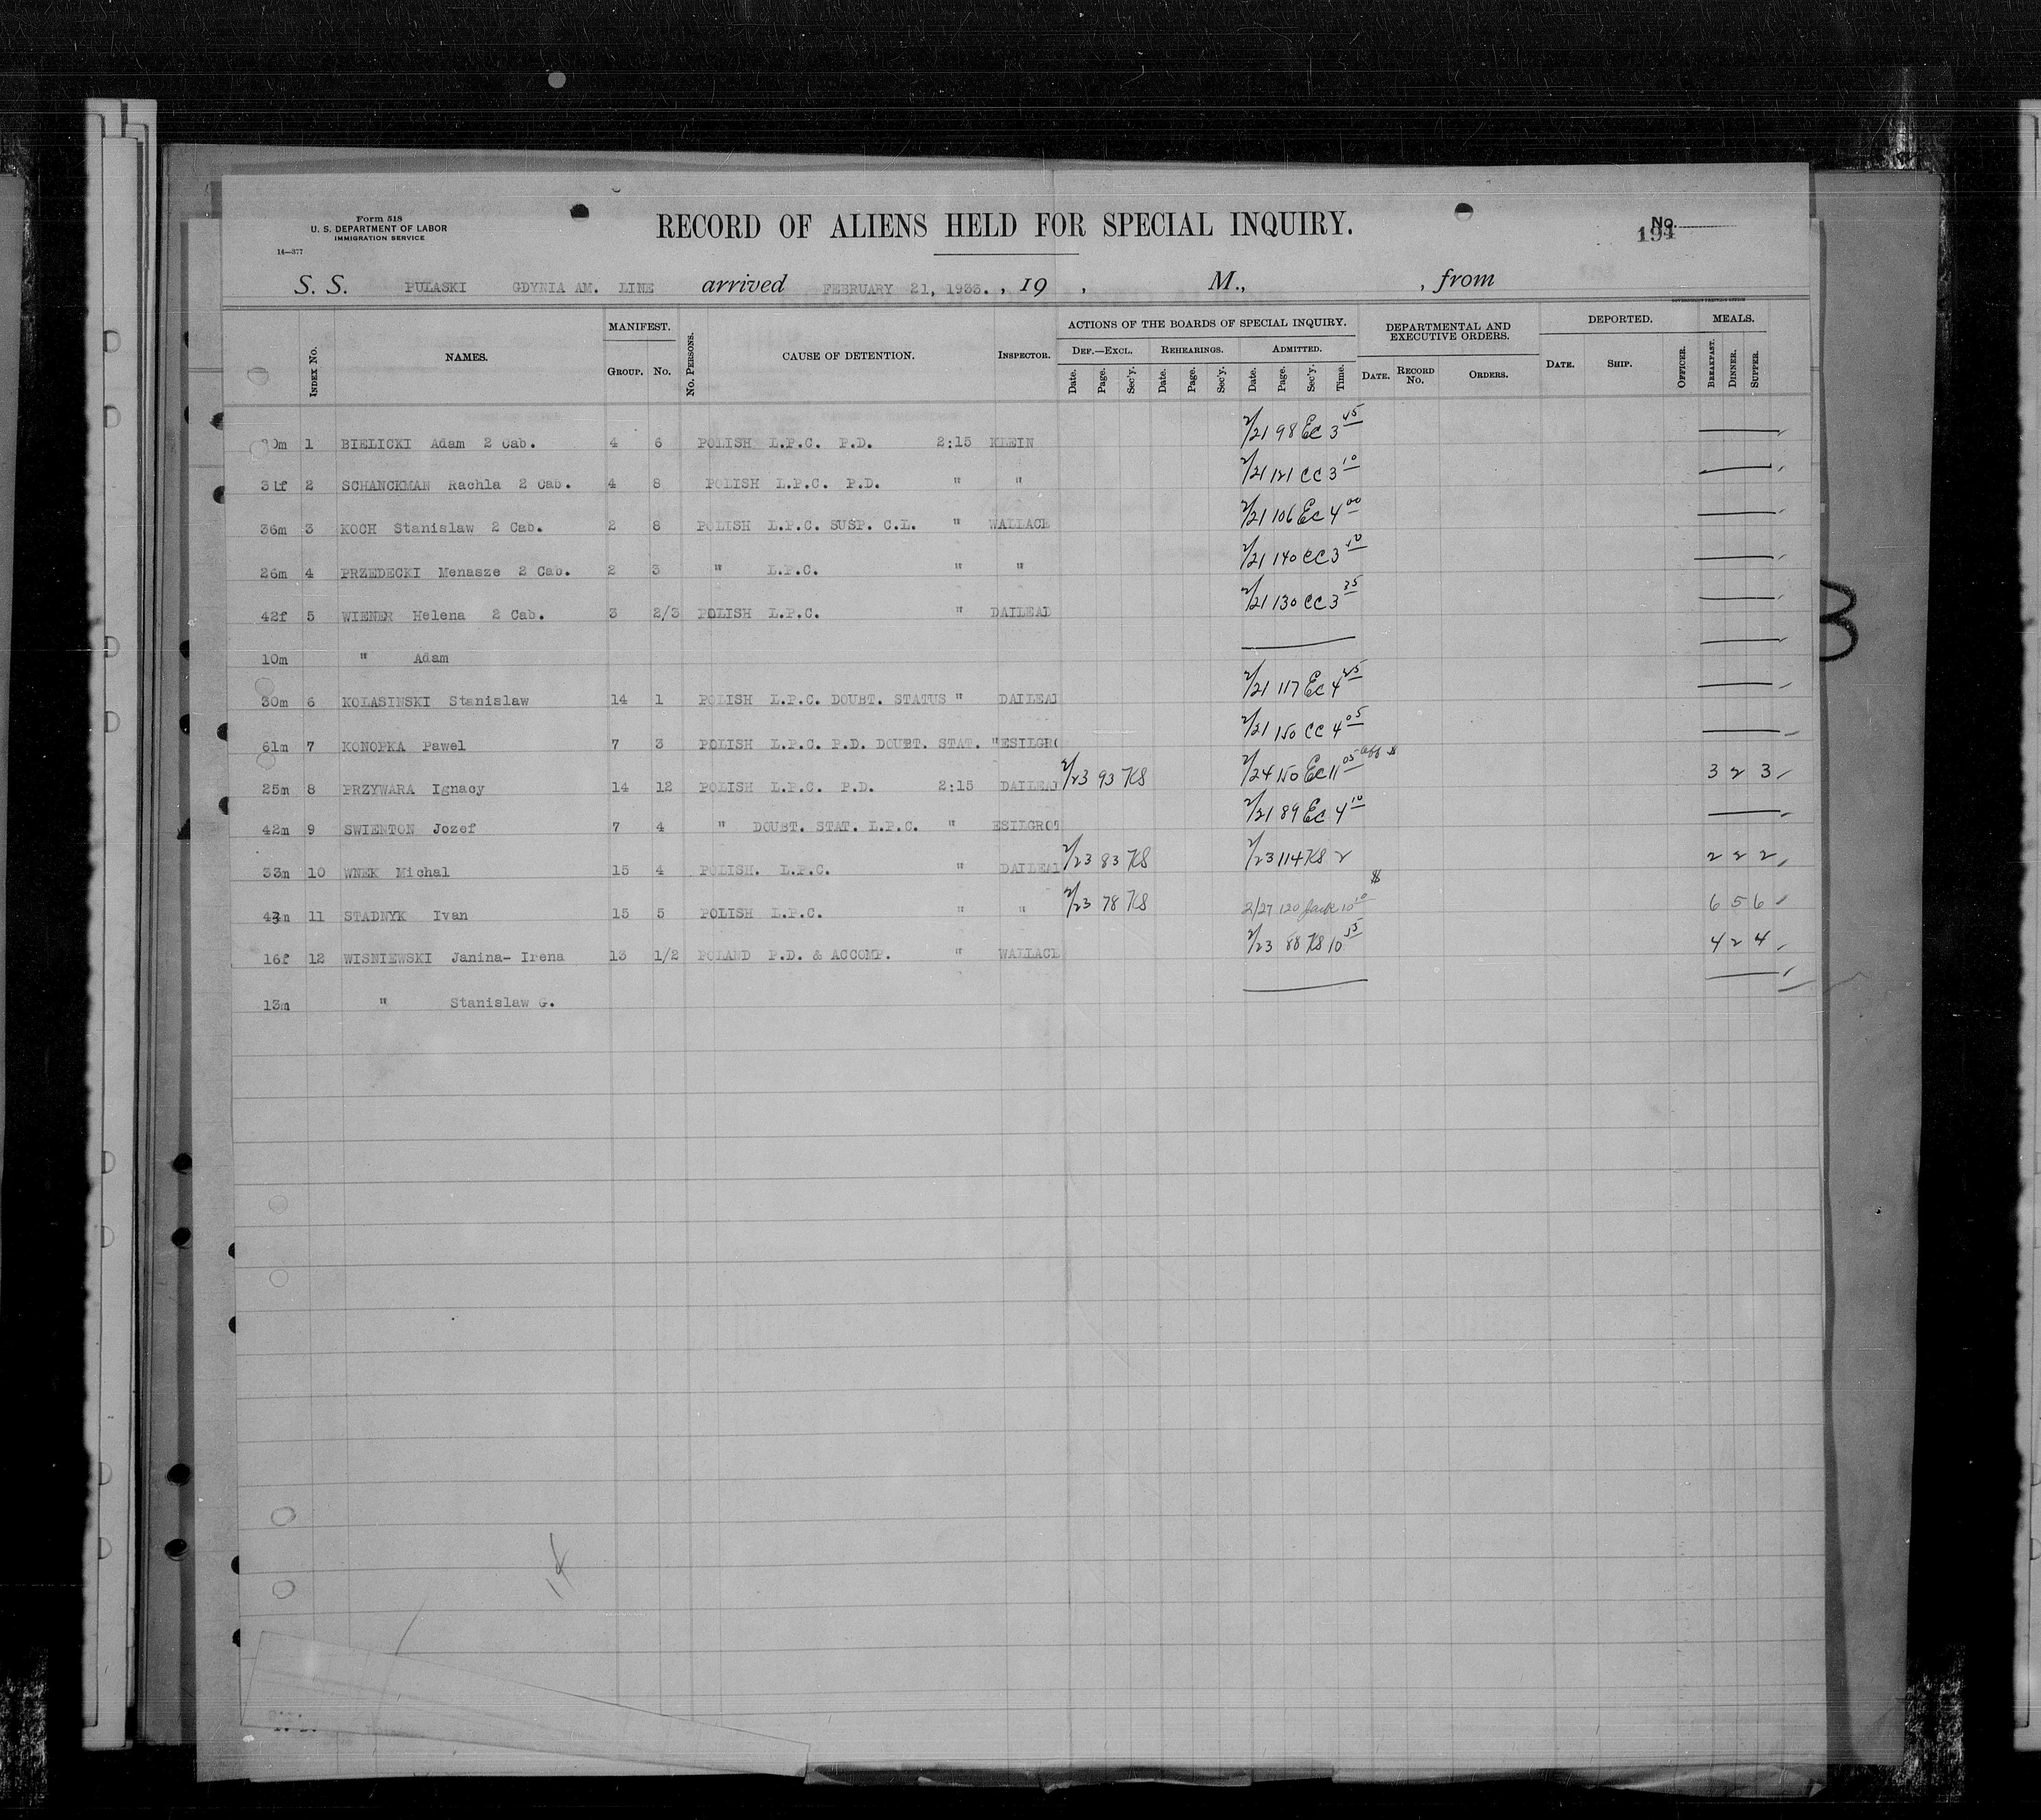 Form 518
U. S. DEPARTMENT OF LABOR
IMMIGRATION SERVICE
14—377
RECORD OF ALIENS HELD FOR SPECIAL INQUIRY.
No.
194
S. S. PULASKI GDYNIA AM. LINE arrived FEBRUARY 21, 1933. , 19 , M., , from
INDEX No. NAMES. MANIFEST. GROUP. NO. NO. PERSONS. CAUSE OF DETENTION. INSPECTOR. ACTIONS OF THE BOARDS OF SPECIAL INQUIRY. DEPARTMENTAL AND EXECUTIVE ORDERS. DEPORTED. MEALS.
DEF.—EXCL. REHEARINGS. ADMITTED.
Date. Page. Sec'y. Date. Page. Sec'y. Date. Page. Sec'y. Time. DATE. RECORD No. ORDERS. DATE. SHIP. OFFICER. BREAKFAST. DINNER. SUPPER.
30m 1 BIELICKI Adam 2 Cab. 4 6 POLISH L.P.C. P.D. 2:15 KLEIN 2/21 98 Ec 3 45
31f 2 SCHANCKMAN Rachla 2 Cab. 4 8 POLISH L.P.C. P.D. " " 2/21 121 CC 3 10
36m 3 KOCH Stanislaw 2 Cab. 2 8 POLISH L.P.C. SUSP. C.L. " WALLACE 2/21 106 Ec 4 00
26m 4 PRZEDECKI Menasze 2 Cab. 2 3 " L.P.C. " " 2/21 140 CC 3 50
42f 5 WIENER Helena 2 Cab. 3 2/3 POLISH L.P.C. " DAILEAD 2/21 130 CC 3 35
10m " Adam
30m 6 KOLASINSKI Stanislaw 14 1 POLISH L.P.C. DOUBT. STATUS " DAILEAD 2/21 117 Ec 4 25
61m 7 KONOPKA Pawel 7 3 POLISH L.P.C. P.D. DOUBT. STAT. " ESILGRO 2/21 150 CC 4 05
25m 8 PRZYWARA Ignacy 14 12 POLISH L.P.C. P.D. 2:15 DAILEAD 2/23 93 KS 2/24 150 Ec 11 05 aff $ 3 2 3
42m 9 SWIENTON Jozef 7 4 " DOUBT. STAT. L.P.C. " ESILGROT 2/21 89 Ec 4 10
33m 10 WNEK Michal 15 4 POLISH. L.P.C. " DAILEAD 2/23 83 KS 2/23 114 KS 2 2 2 2
43m 11 STADNYK Ivan 15 5 POLISH L.P.C. " " 2/23 78 KS 2/27 120 10 10 $ 6 5 6
16f 12 WISNIEWSKI Janina- Irena 13 1/2 POLAND P.D. & ACCOMP. " WALLACE 2/23 88 KS 10 55 4 2 4
13m " Stanislaw G.
14